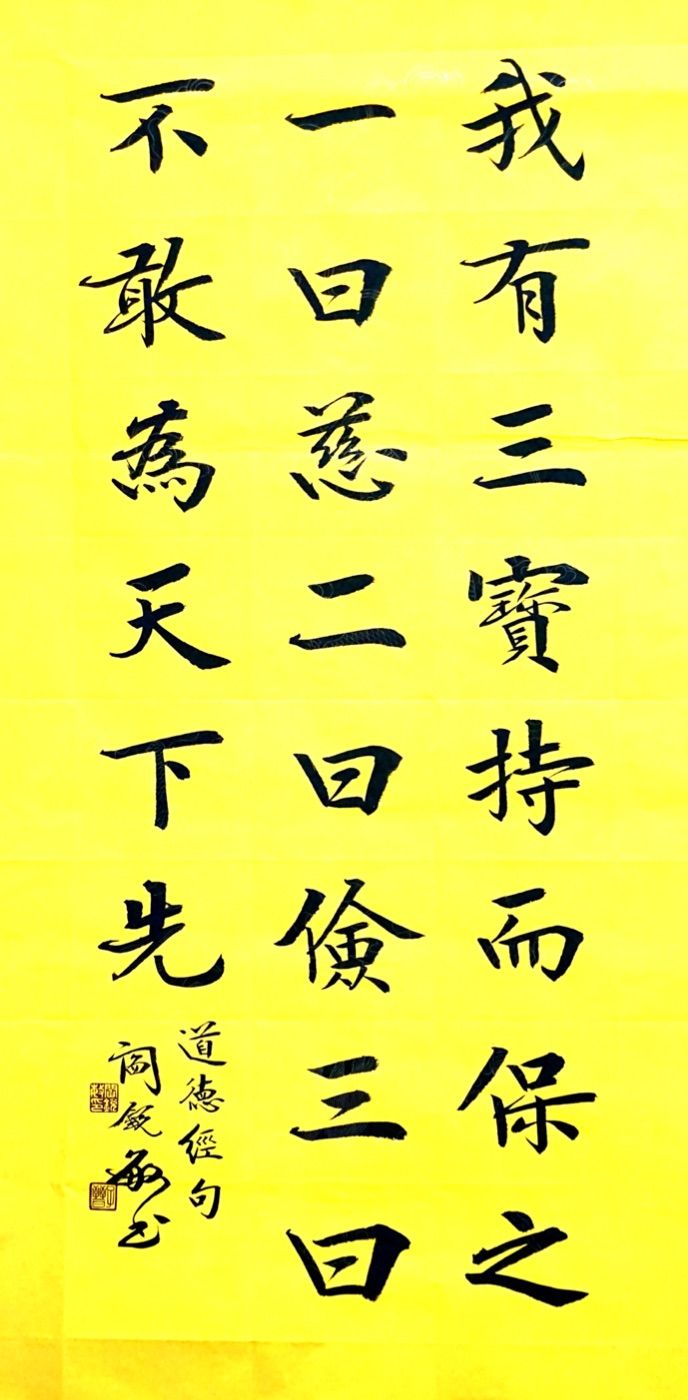 我有三寶持而保之
一曰慈二曰儉三曰
不敢為天下先
道德經句
閻銳敏书